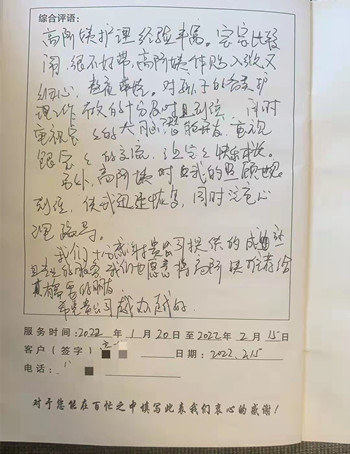 综合评语:
高阿姨护理经验丰富。宝宝比较
闹,很不好带,高阿姨体贴入微又
细心,
理工作做的十分及时且到位,同时
重视宝宝的大
跟宝宝的交流,让宝宝快乐成长。
另外,高阿姨对我的照顾也
到位,使我迅速恢复,同时注意心
理
我们十分感谢贵公司提供的
且专业的服务,我们也愿意将高阿姨推荐给
有需要的朋友
希望贵公司越办越好。
服务时间:2022年1月20日至2022年2月15日
客户(签字)
日期:2022.2.15
电话:
对于您能在百忙之中填写此表我们衷心的感谢!